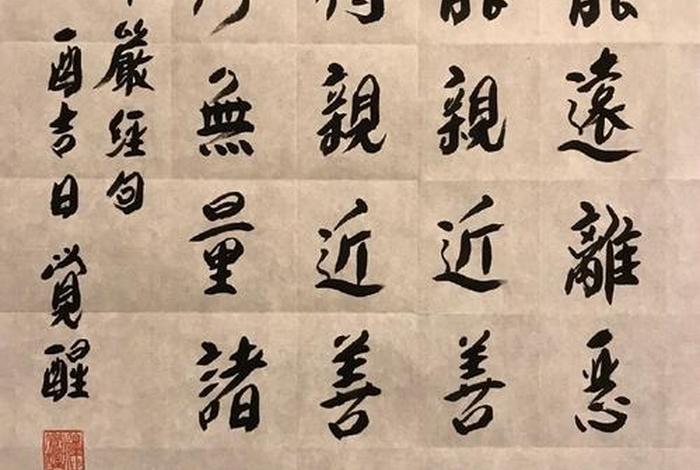 能遠離惡
能親近善
得親近善
無量諸
嚴經句
酉吉日 覺醒